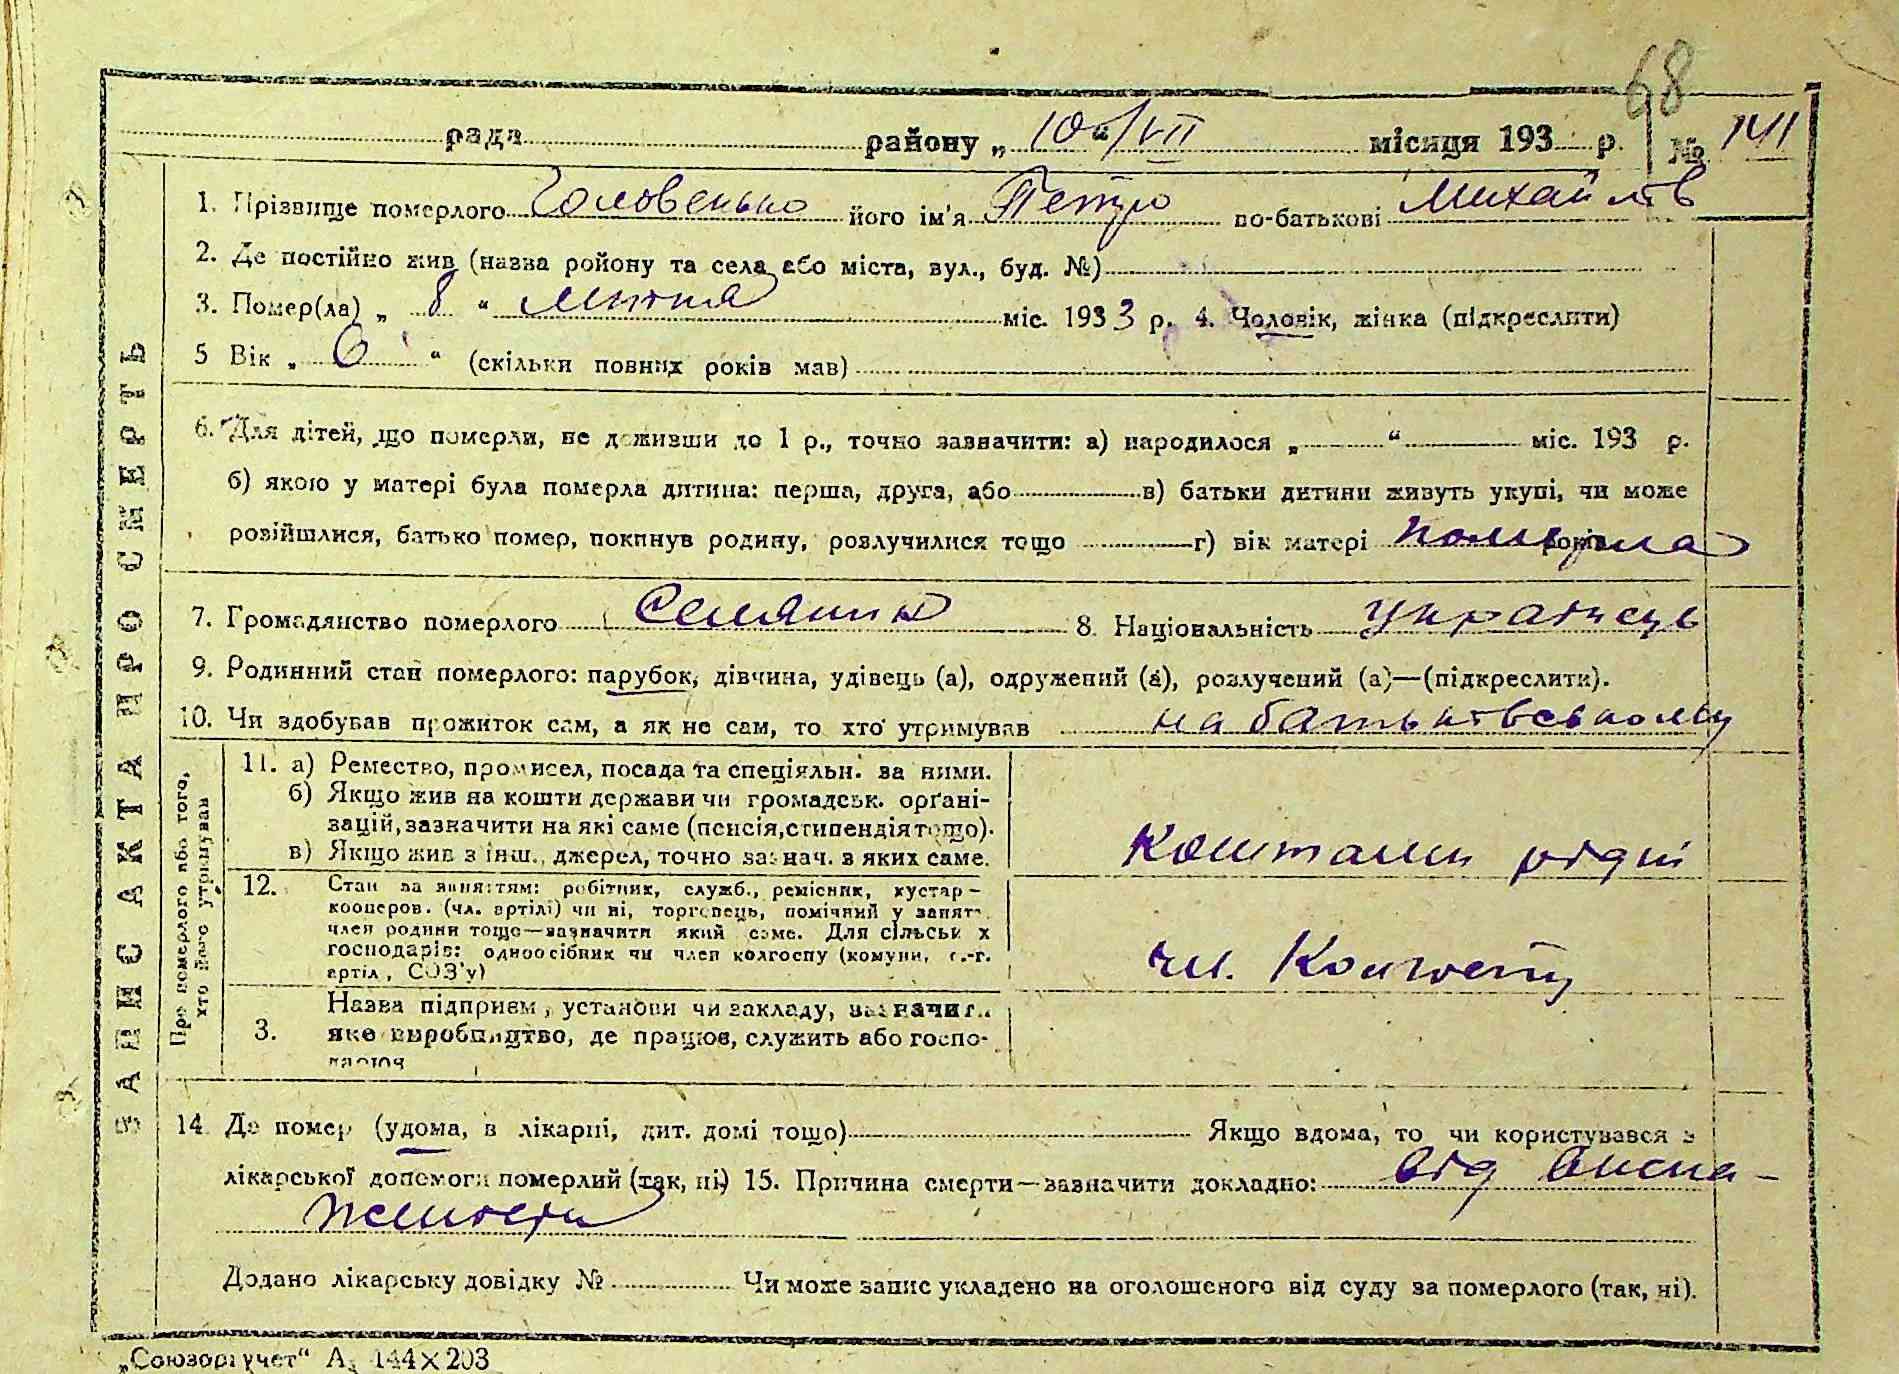 68
рада района „ 10 “ / VII місяця 193 р. № 141
1. Прізвище померлого Головенько його ім'я Петро по-батькові Михайлів
2. Де постійно жив (назва ройону та села або міста, вул., буд. №)
3. Помер(ла) „ 8 “ липня міс. 1933 р. 4. Чоловік, жінка (підкреслити)
5 Вік „ 6 “ (скільки повних років мав)
6. Для дітей, що померли, не доживши до 1 р., точно зазначити: а) народилося „ “ міс. 193 р.
б) якою у матері була померла дитина: перша, друга, або в) батьки дитини живуть укупі, чи може
розійшлися, батько помер, покинув родину, розлучилися тощо г) вік матері померла років
7. Громадянство померлого Селянин 8. Національність Українець
9. Родинний стан померлого: парубок, дівчина, удівець (а), одружений (а), розлучений (а)—(підкреслити).
10. Чи здобував прожиток сам, а як не сам, то хто утримував на батьківському
ЗАПИС АКТА ПРО СМЕРТЬ
Про померлого або того, хто його утримував
11. а) Ремество, промисел, посада та спеціяльн. за ними.
б) Якщо жив на кошти держави чи громадськ. орґані-
зацій, зазначити на які саме (пенсія, стипендія тощо).
в) Якщо жив з інш., джерел, точно зазнач. з яких саме.
Коштами рідні
12. Стан за заняттям: робітник, служб., ремісник, кустар-
кооперов. (чл. артілі) чи ні, торговець, помічний у занят.
член родини тощо—зазначити який саме. Для сільськ х
господарів: одноосібник чи член колгоспу (комуни, с.-г.
артіл, СОЗ'у)
чл. Колгоспу
3. Назва підприєм, установи чи закладу, зазначит..
яке виробництво, де працює, служить або госпо-
дарює
14. Де помер (удома, в лікарні, дит. домі тощо) Якщо вдома, то чи користувався з
лікарської допомоги померлий (так, ні) 15. Причина смерти—зазначити докладно: від висна-
женности
Додано лікарську довідку № Чи може запис укладено на оголошеного від суду за померлого (так, ні).
„Союзоргучет“ А5 144×203